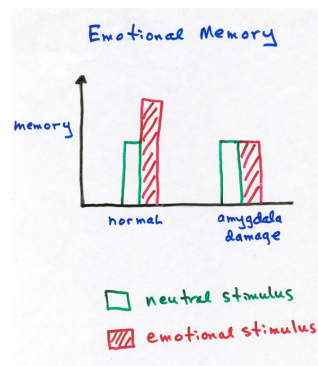 Emotional Memory
memory
normal
amygdala
damage
neutral stimulus
emotional stimulus